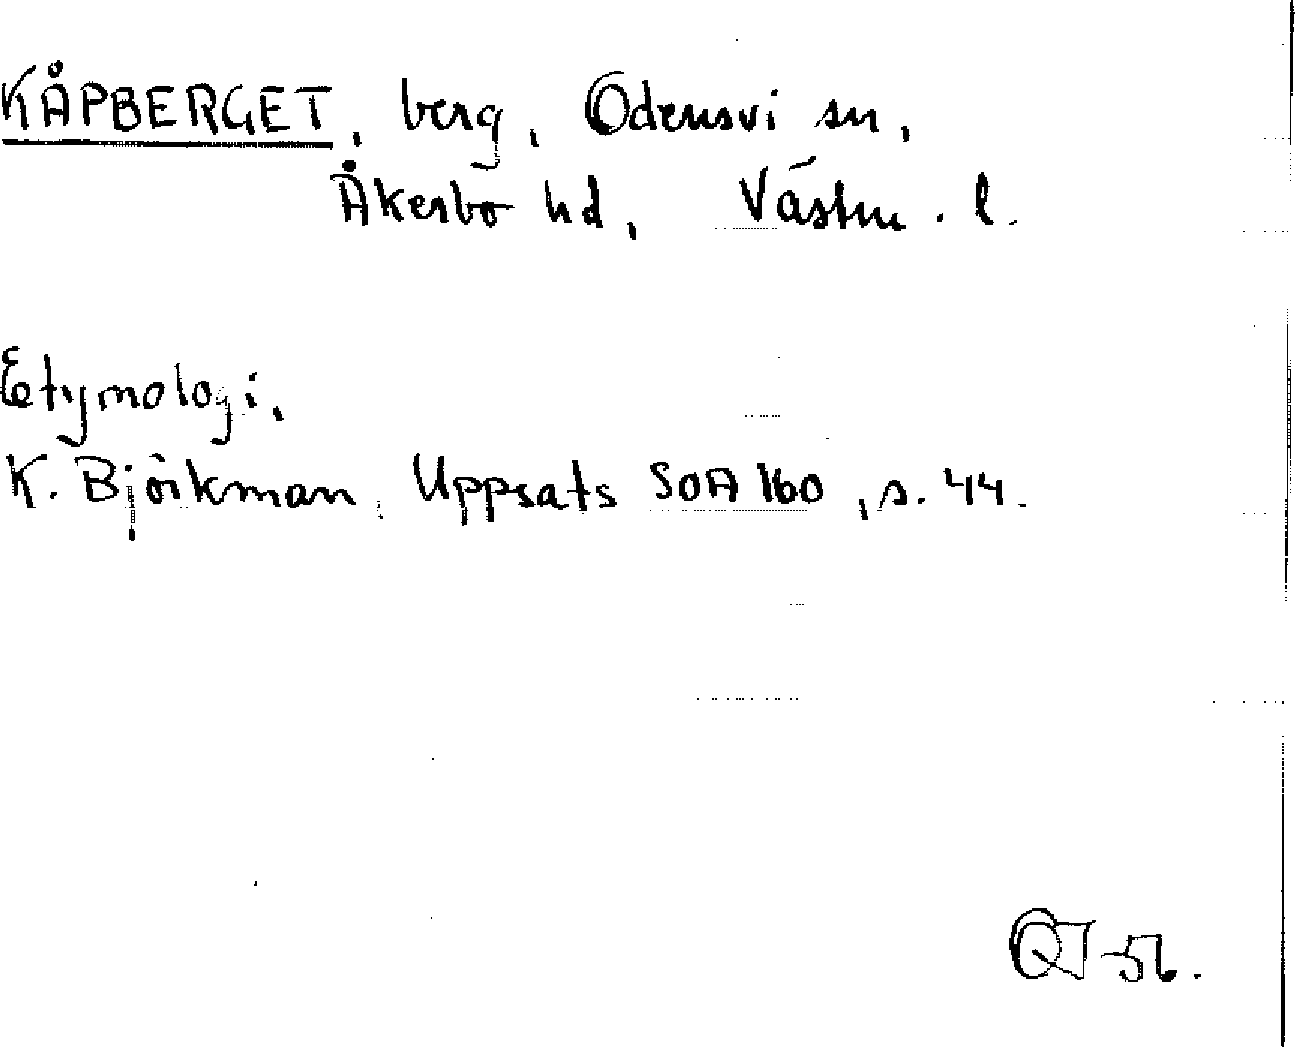 KÅPBERGET, berg, Odensvi sn,
Åkerbo hd, Västm. l.
Etymologi.
K. Björkman, Uppsats SOA 160, s. 44.